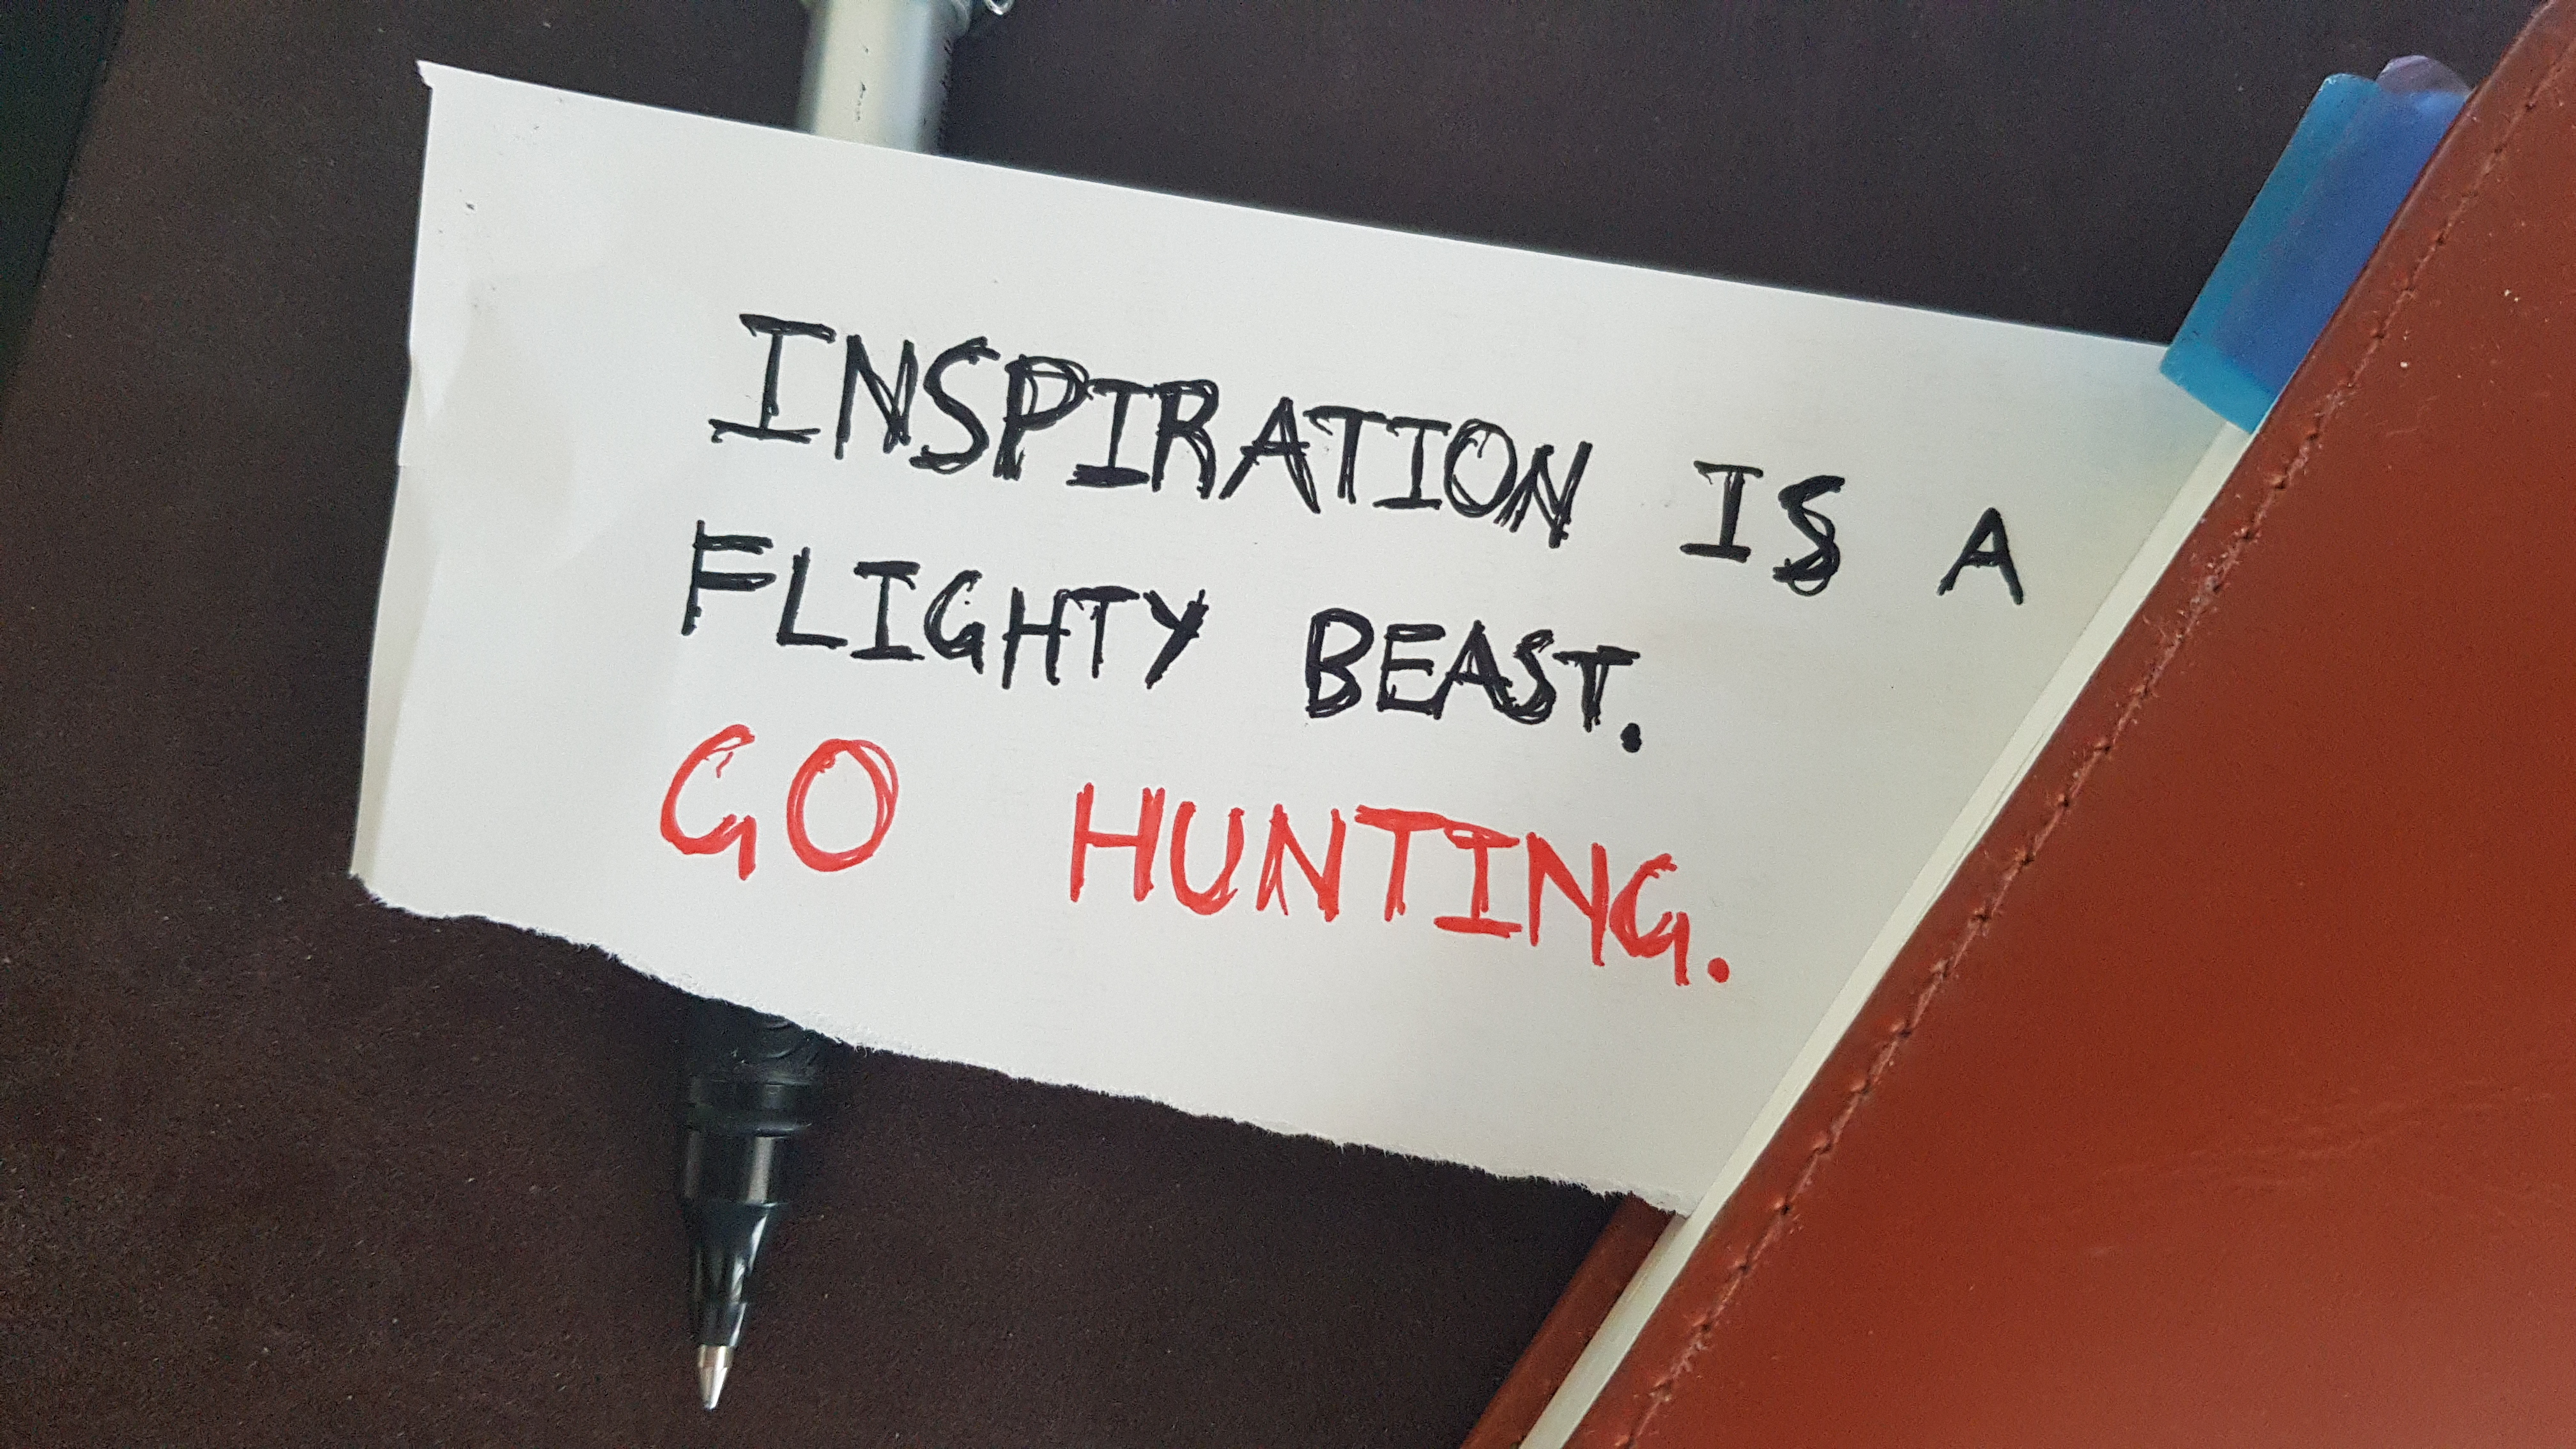 INSPIRATION IS A
FLIGHTY BEAST.
GO HUNTING.